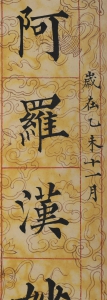 阿羅漢
歲在乙未十一月